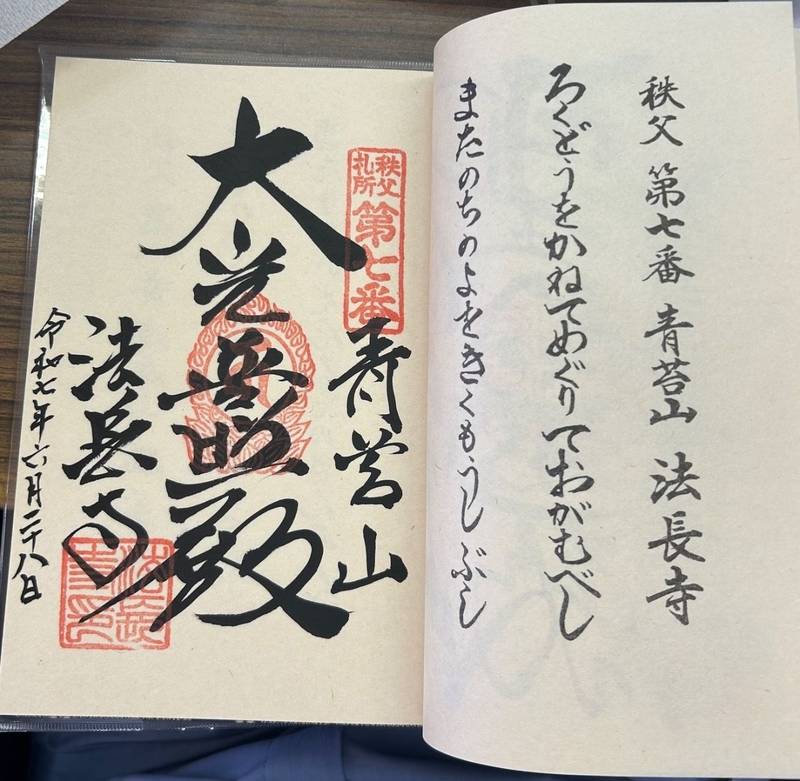 秩父 第七番 青苔山 法長寺
ろくどうをかねてめぐりておがむべし
またのちのよをきくもうしぶし
秩父
札所
第七番
青苔山
大光普照殿
法長寺
令和七年六月二十八日